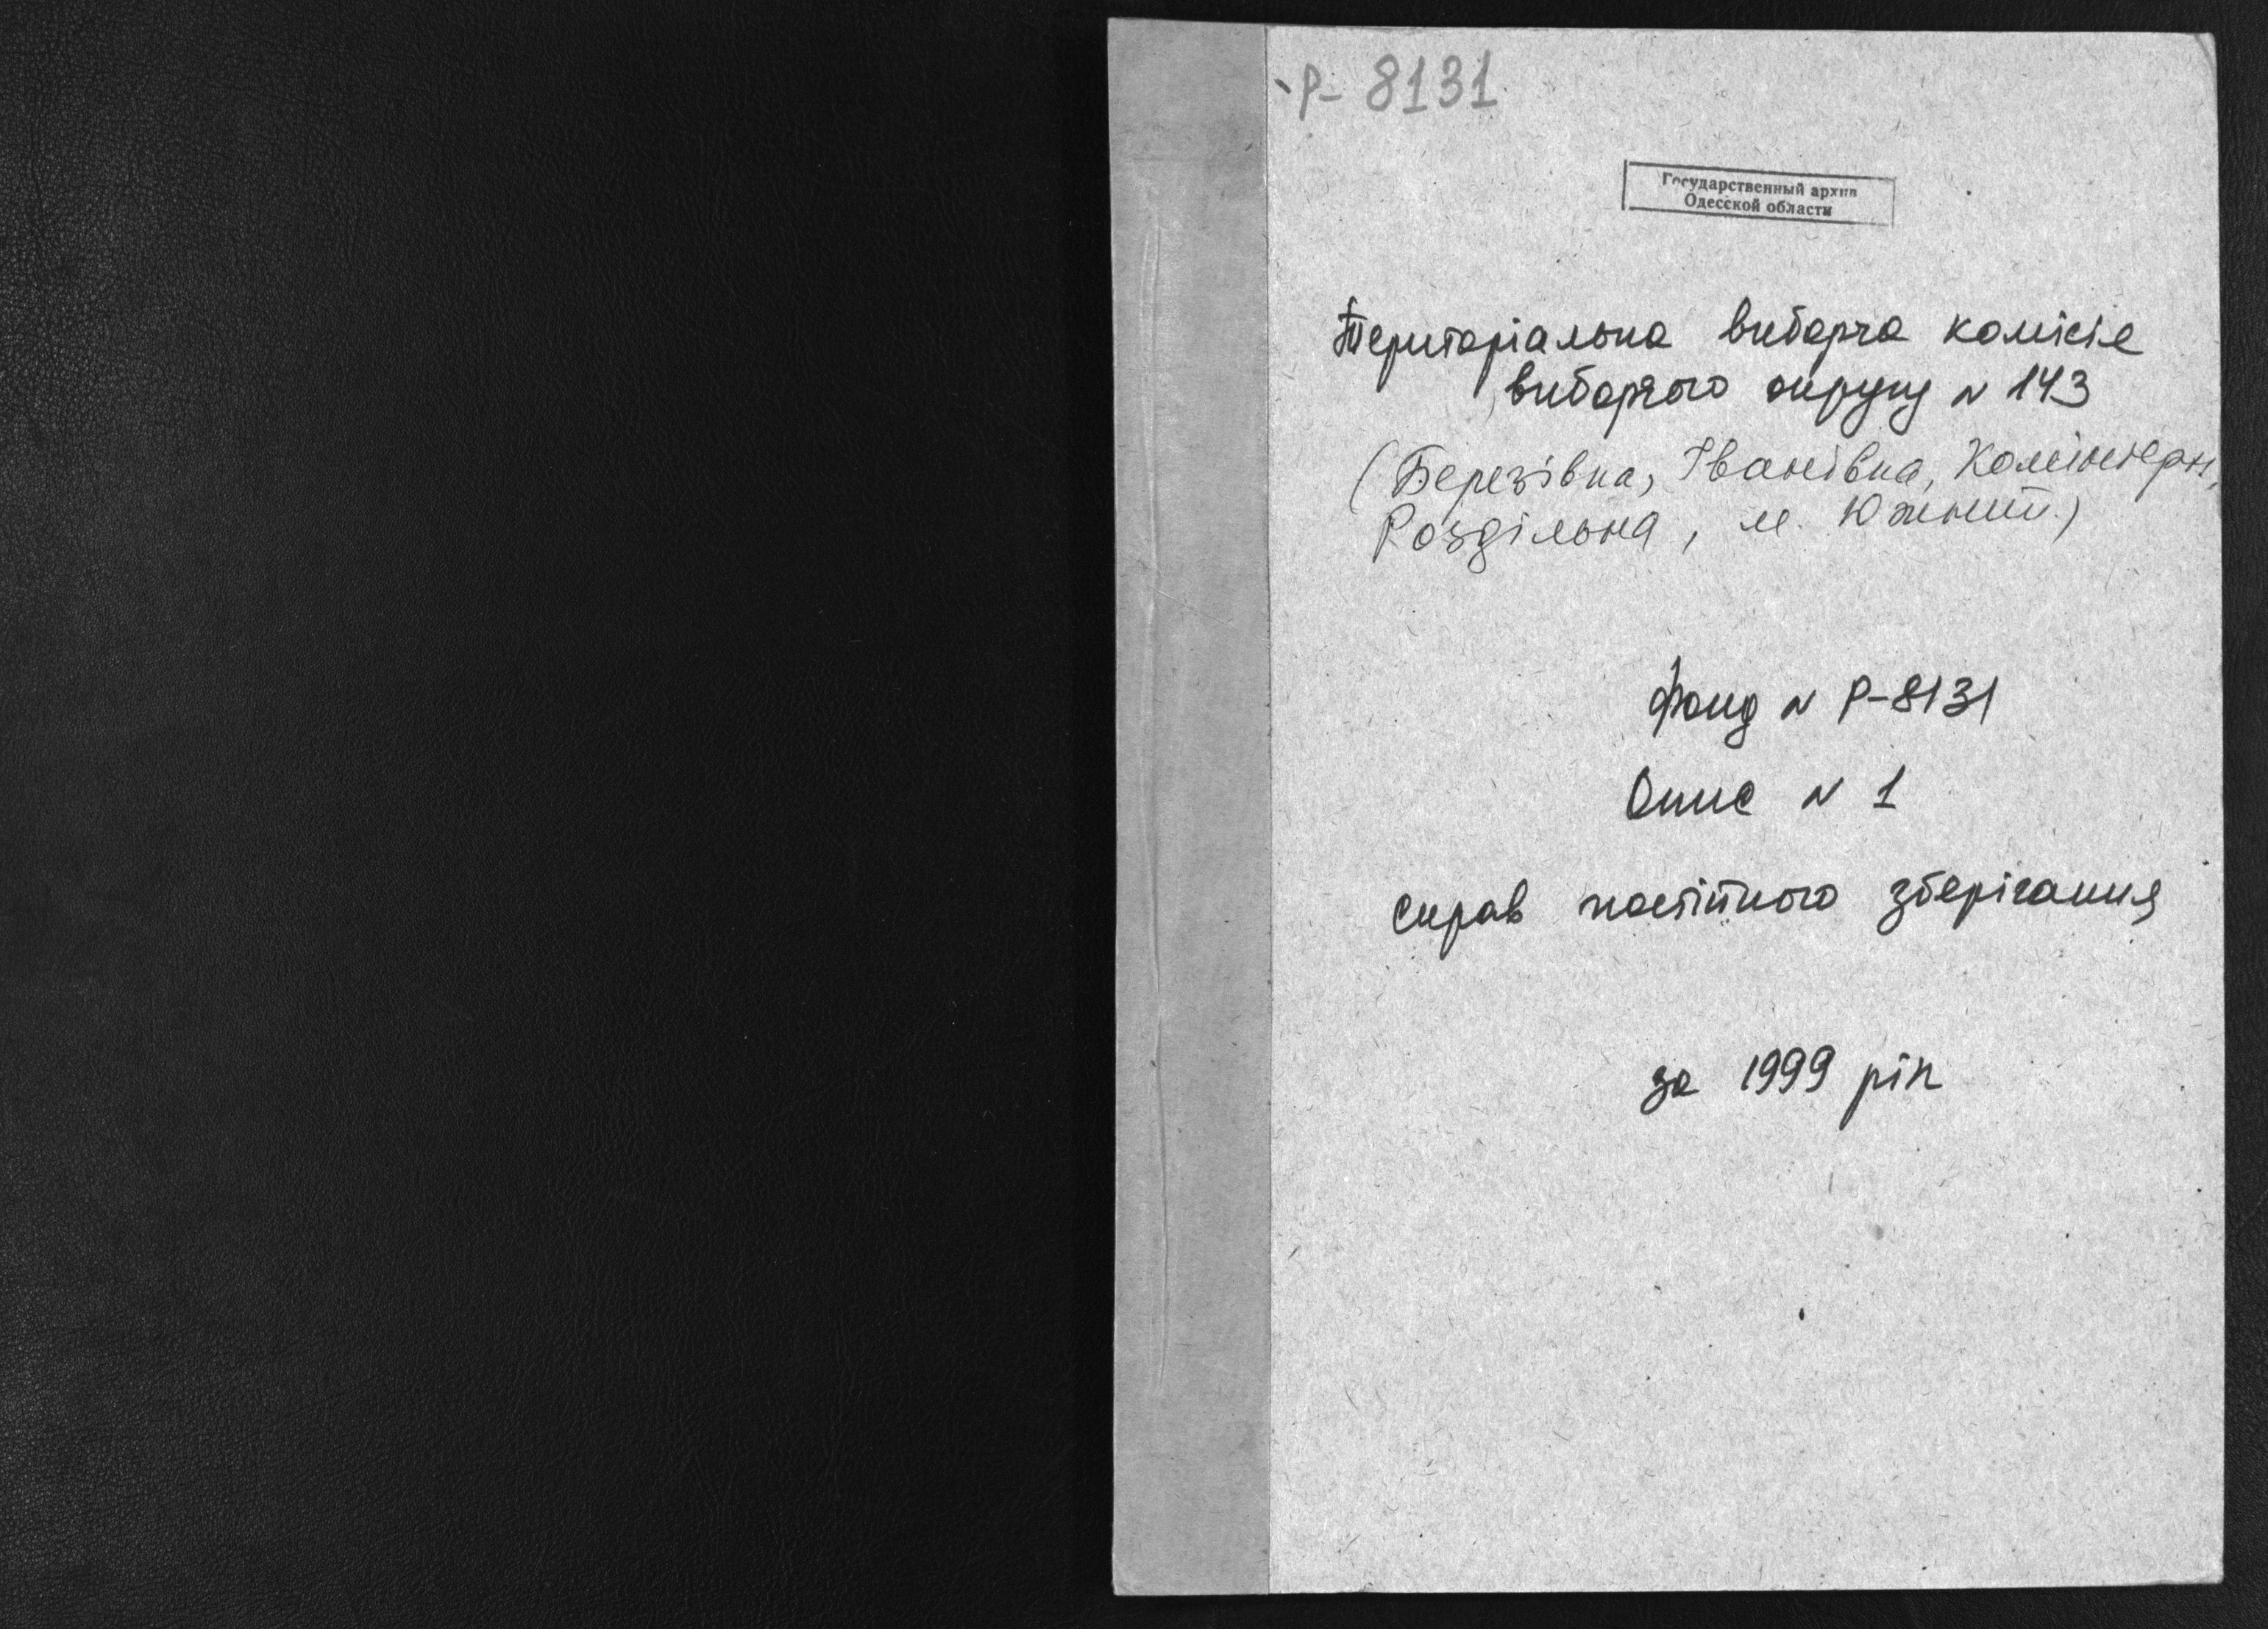 Р-8131
Государственный архив
Одесской области
Територіальна виборча комісія
виборчого округу № 143
(Березівка, Іванівка, Комінтерн,
Роздільна, м. Южний.)
Фонд № Р-8131
Опис № 1
справ постійного зберігання
за 1999 рік